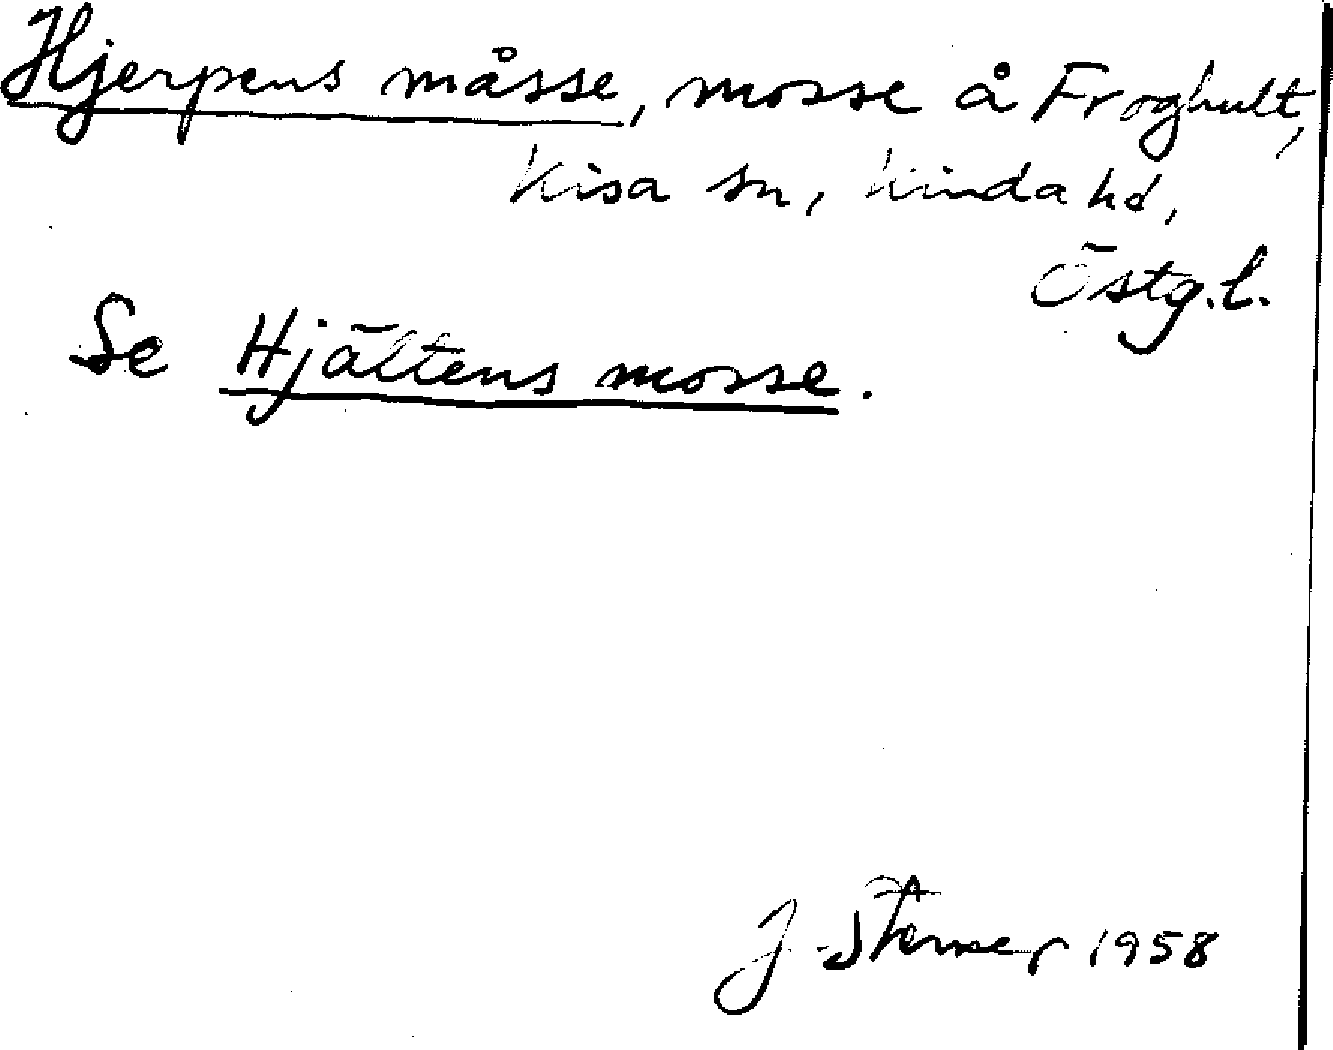 Hjerpens måsse, mosse å Froghult,
Kisa sn, Kinda hd,
Östg.l.
Se Hjältens mosse.
J 1958